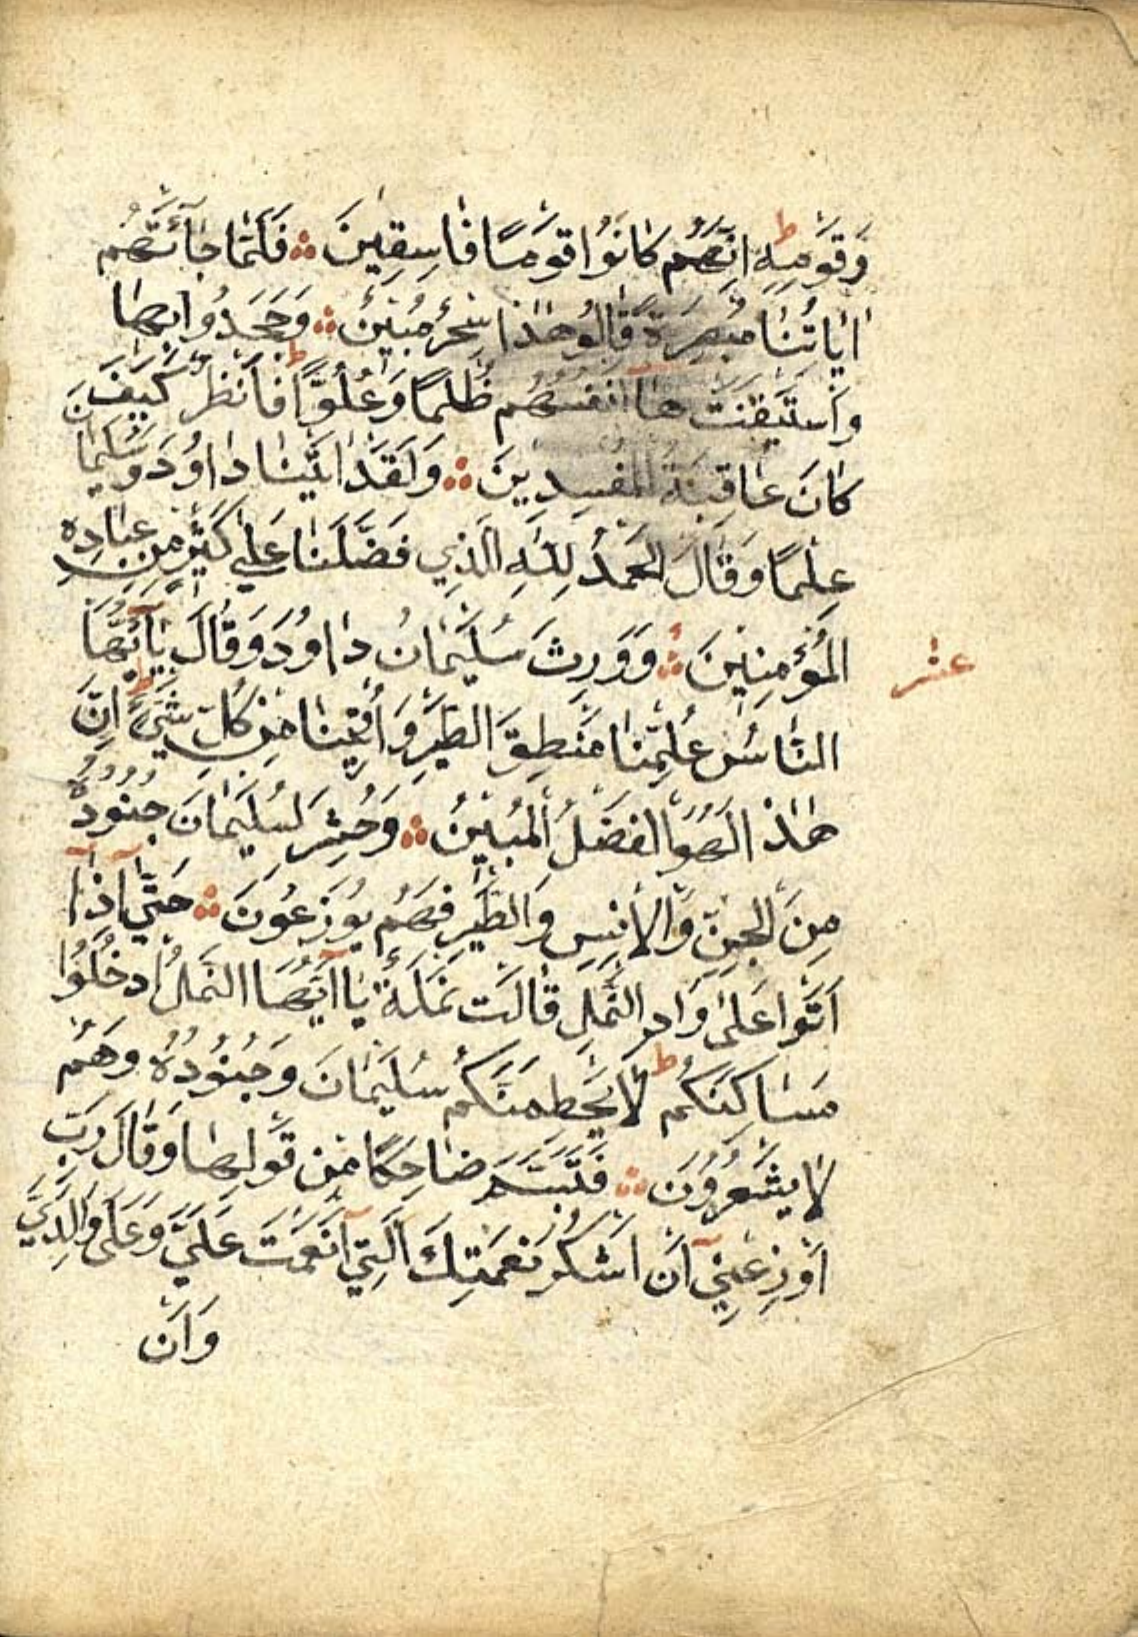 وَقَوْمِهِ اِنَّهُمْ كَانُوا قَوْمًا فَاسِقِينَ فَلَمَّا جَآءَتْهُمْ
اٰيَاتُنَا مُبْصِرَةً قَالُو هٰذَا سِحْرٌ مُبِينٌ وَجَحَدُوا بِهَا
وَاسْتَيْقَنَتْ هَا اَنْفُسُهُمْ ظُلْمًا وَعُلُوًّا فَانْظُرْ كَيْفَ
كَانَ عَاقِبَةُ الْمُفْسِدِينَ وَلَقَدْ اٰتَيْنَا دَاوُدَ وَسُلَيْمَانَ
عِلْمًا وَقَالَ الْحَمْدُ لِلّٰهِ الَّذِي فَضَّلَنَا عَلٰى كَثِيرٍ مِنْ عِبَادِهِ
الْمُؤْمِنِينَ وَوَرِثَ سُلَيْمَانُ دَاوُدَ وَقَالَ يَآاَيُّهَا
عشر
النَّاسُ عُلِّمْنَا مَنْطِقَ الطَّيْرِ وَاُوتِينَا مِنْ كُلِّ شَيْءٍ اِنَّ
هٰذَا لَهُوَ الْفَضْلُ الْمُبِينُ وَحُشِرَ لِسُلَيْمَانَ جُنُودُهُ
مِنَ الْجِنِّ وَالْاِنْسِ وَالطَّيْرِ فَهُمْ يُوزَعُونَ حَتّٰى اِذَا
اَتَوْا عَلٰى وَادِ النَّمْلِ قَالَتْ نَمْلَةٌ يَا اَيُّهَا النَّمْلُ ادْخُلُوا
مَسَاكِنَكُمْ لَا يَحْطِمَنَّكُمْ سُلَيْمَانُ وَجُنُودُهُ وَهُمْ
لَا يَشْعُرُونَ فَتَبَسَّمَ ضَاحِكًا مِنْ قَوْلِهَا وَقَالَ رَبِّ
اَوْزِعْنِي اَنْ اَشْكُرَ نِعْمَتَكَ الَّتِي اَنْعَمْتَ عَلَيَّ وَعَلٰى وَالِدَيَّ
وَاَنْ